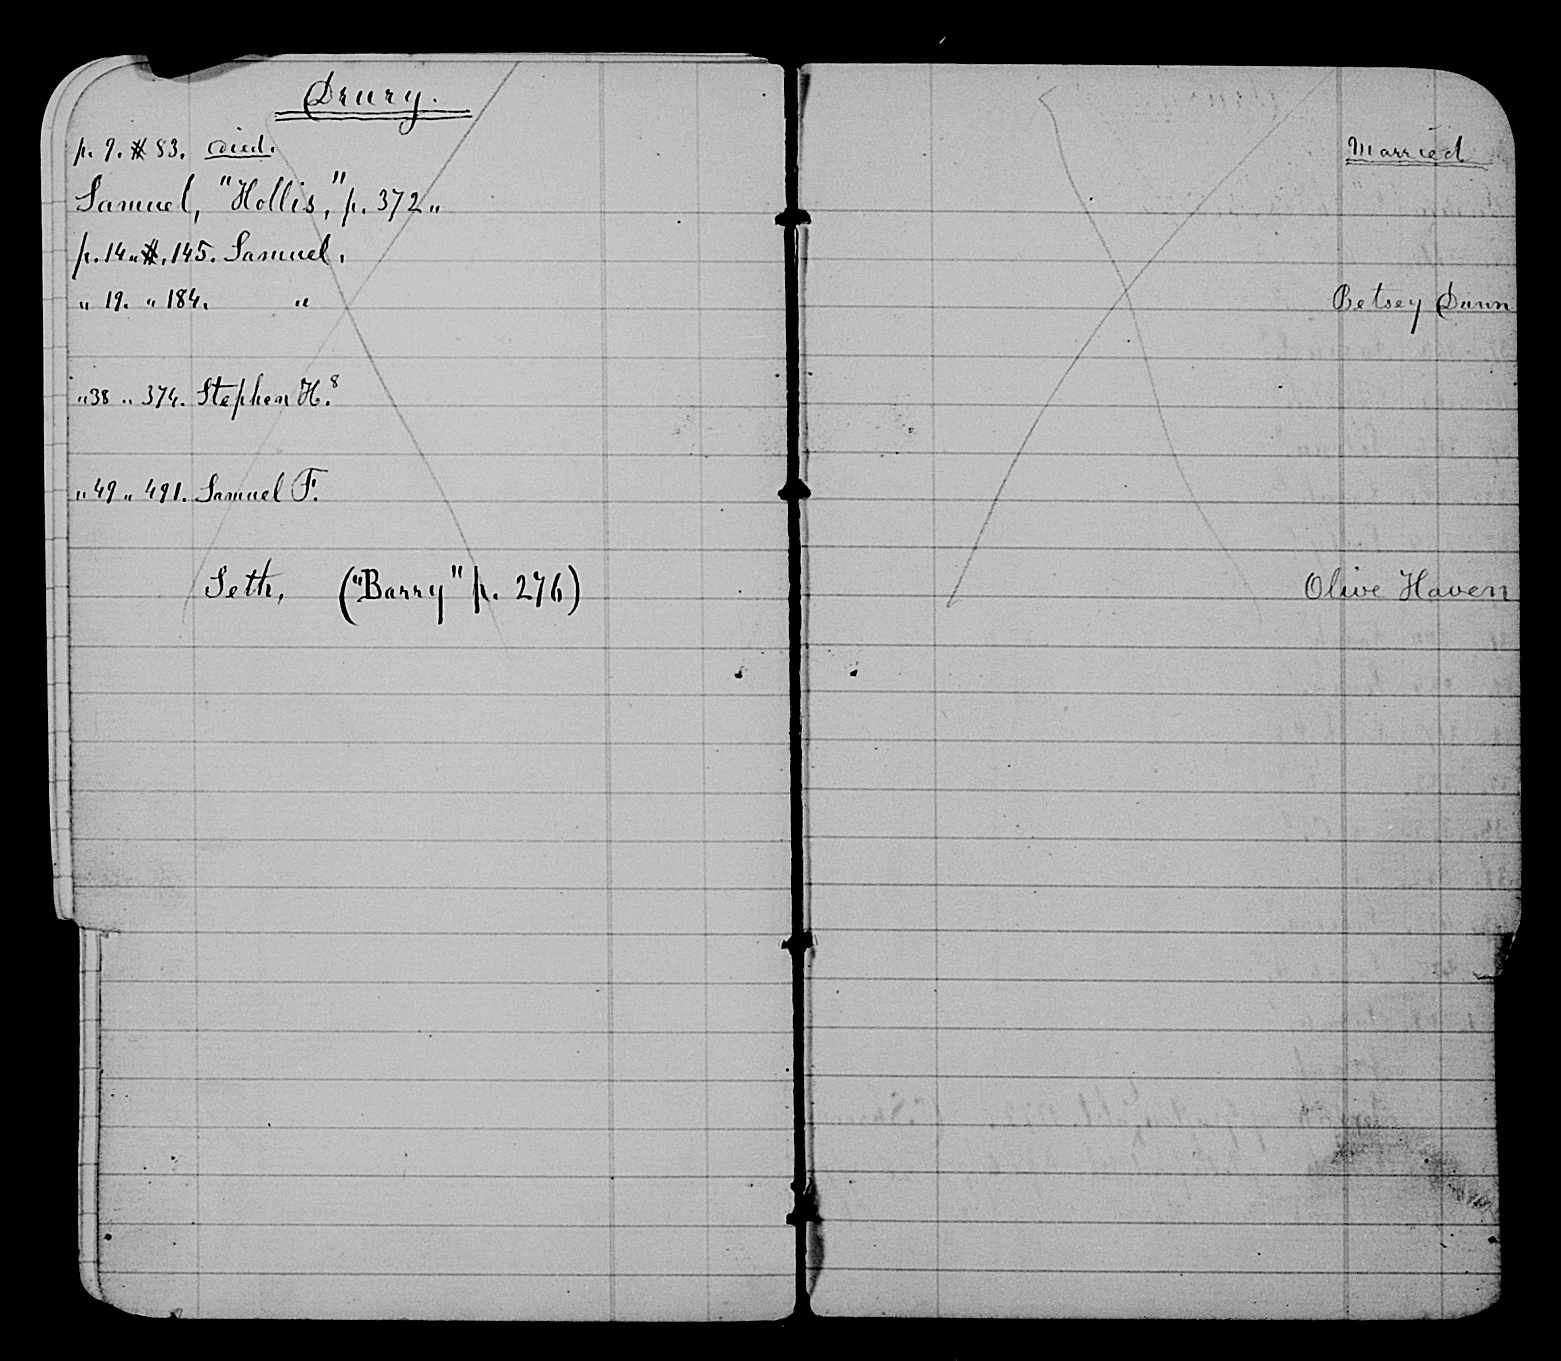 Drury.
p. 9. # 83. died.
Samuel, "Hollis," p. 372 „
p. 14 „ #, 145. Samuel,
„ 19. „ 184. „
„ 38 „ 374. Stephen H.⁸
„ 49 „ 491. Samuel F.
Seth, ("Barry" p. 276)
Married
Betsey Dunn
Olive Haven